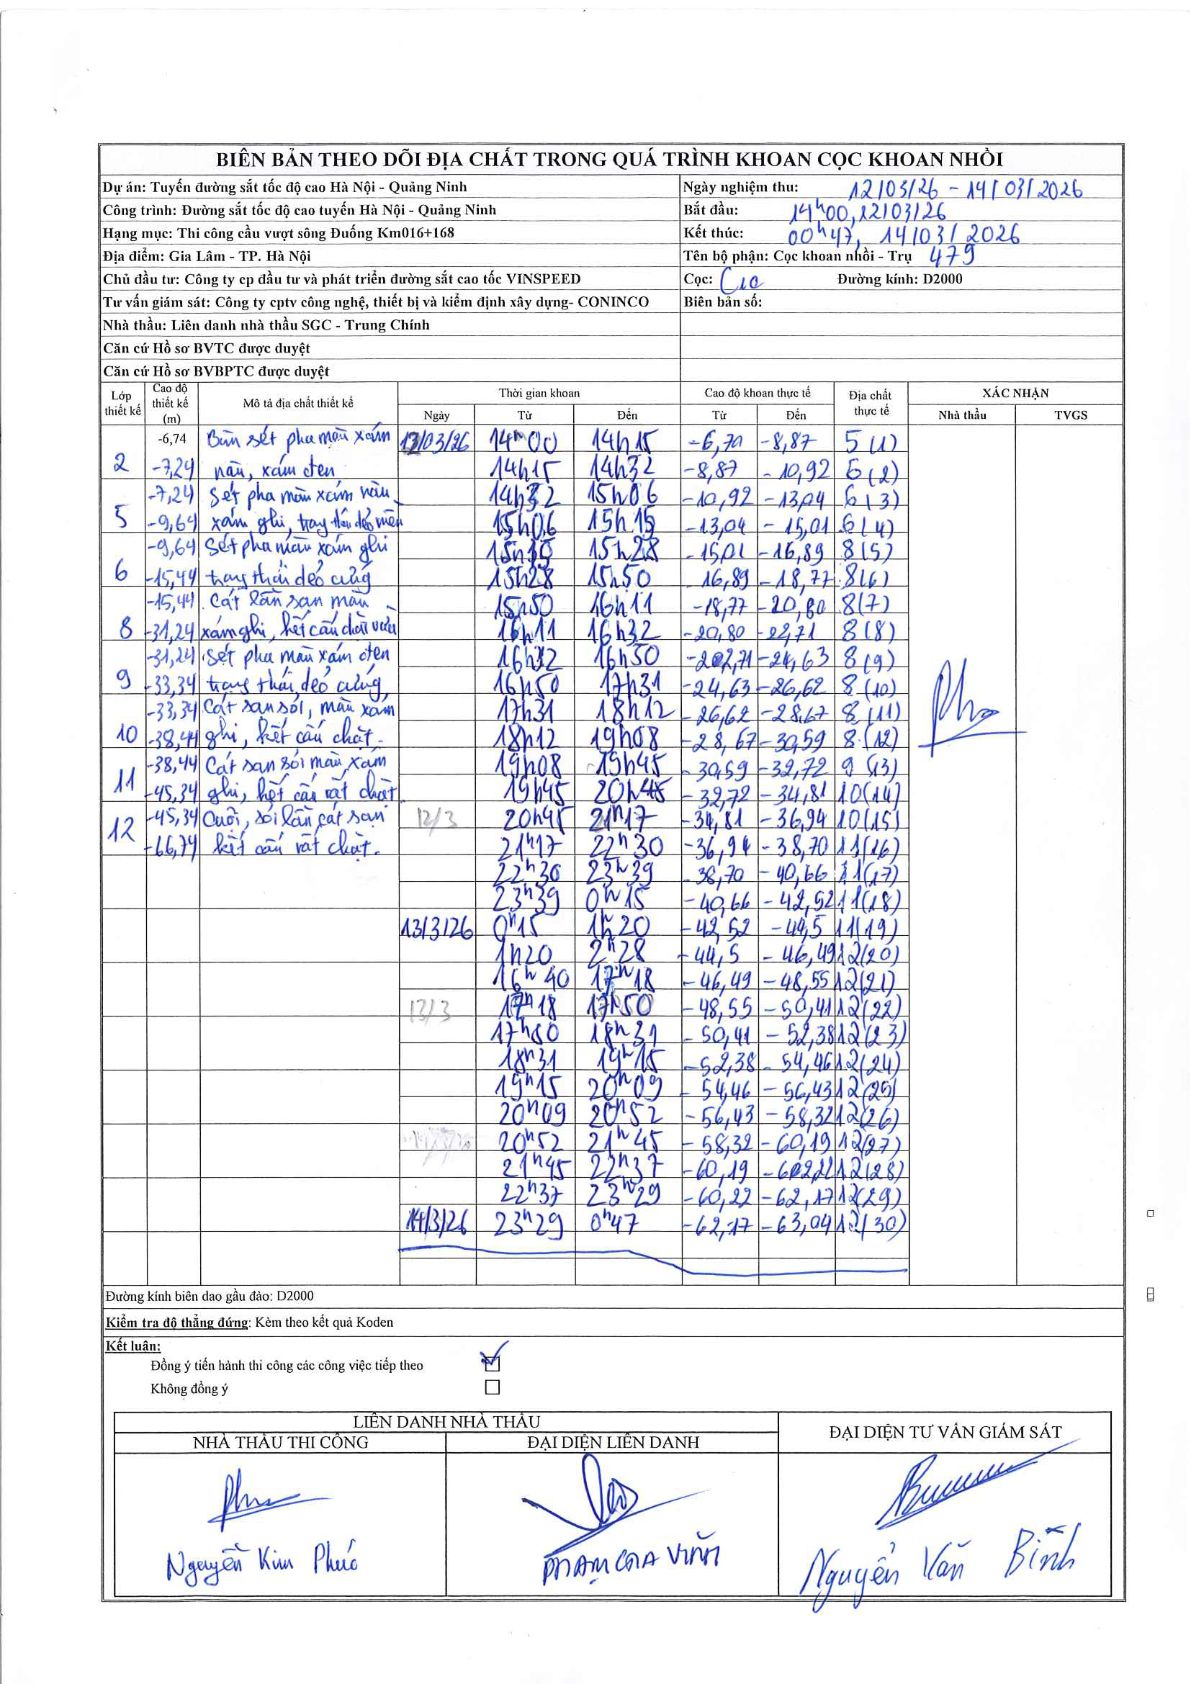 BIÊN BẢN THEO DÕI ĐỊA CHẤT TRONG QUÁ TRÌNH KHOAN CỌC KHOAN NHỒI
Dự án: Tuyến đường sắt tốc độ cao Hà Nội - Quảng Ninh Ngày nghiệm thu: 12/03/26 - 14/03/2026
Công trình: Đường sắt tốc độ cao tuyến Hà Nội - Quảng Ninh Bắt đầu: 14h00, 12/03/26
Hạng mục: Thi công cầu vượt sông Đuống Km016+168 Kết thúc: 00h47, 14/03/2026
Địa điểm: Gia Lâm - TP. Hà Nội Tên bộ phận: Cọc khoan nhồi - Trụ 479
Chủ đầu tư: Công ty cp đầu tư và phát triển đường sắt cao tốc VINSPEED Cọc: Đường kính: D2000
Tư vấn giám sát: Công ty cptv công nghệ, thiết bị và kiểm định xây dựng- CONINCO Biên bản số:
Nhà thầu: Liên danh nhà thầu SGC - Trung Chính
Căn cứ Hồ sơ BVTC được duyệt
Căn cứ Hồ sơ BVBPTC được duyệt
Lớp thiết kế Cao độ thiết kế (m) Mô tả địa chất thiết kế Thời gian khoan Cao độ khoan thực tế Địa chất thực tế XÁC NHẬN
Ngày Từ Đến Từ Đến Nhà thầu TVGS
-6,74 Bùn sét pha màu xám 12/03/26 14h00 14h15 -6,70 -8,87 5(1)
2 -7,24 nâu, xám đen 14h15 14h32 -8,87 -10,92 6(2)
-7,24 Sét pha màu xám nâu, 14h32 15h06 -10,92 -13,04 6(3)
5 -9,64 xám ghi, trạng thái dẻo mềm 15h06 15h15 -13,04 -15,01 6(4)
-9,64 Sét pha màu xám ghi 15h15 15h28 -15,01 -16,89 8(5)
6 -15,44 trạng thái dẻo cứng 15h28 15h50 -16,89 -18,77 8(6)
-15,44 Cát lẫn sạn màu 15h50 16h11 -18,77 -20,80 8(7)
8 -31,24 xám ghi, kết cấu chặt vừa 16h11 16h32 -20,80 -22,71 8(8)
-31,24 Sét pha màu xám đen 16h32 16h50 -22,71 -24,63 8(9)
9 -33,34 trạng thái dẻo cứng 16h50 17h31 -24,63 -26,62 8(10)
-33,34 Cát sạn sỏi, màu xám 17h31 18h12 -26,62 -28,67 8(11)
10 -38,44 ghi, kết cấu chặt. 18h12 19h08 -28,67 -30,59 8(12)
-38,44 Cát sạn sỏi màu xám 19h08 19h45 -30,59 -32,72 9(13)
11 -45,34 ghi, kết cấu rất chặt 19h45 20h45 -32,72 -34,81 10(14)
-45,34 Cuội, sỏi lẫn cát sạn 12/3 20h45 21h17 -34,81 -36,94 10(15)
12 -66,74 kết cấu rất chặt. 21h17 22h30 -36,94 -38,70 11(16)
22h30 23h39 -38,70 -40,66 11(17)
23h39 0h15 -40,66 -42,52 11(18)
13/3/26 0h15 1h20 -42,52 -44,5 11(19)
1h20 2h28 -44,5 -46,49 12(20)
16h40 17h18 -46,49 -48,55 12(21)
13/3 17h18 17h50 -48,55 -50,41 12(22)
17h50 18h31 -50,41 -52,38 12(23)
18h31 19h15 -52,38 -54,46 12(24)
19h15 20h09 -54,46 -56,43 12(25)
20h09 20h52 -56,43 -58,32 12(26)
20h52 21h45 -58,32 -60,19 12(27)
21h45 22h37 -60,19 12(28)
22h37 23h29 -60,22 -62,17 12(29)
14/3/26 23h29 0h47 -62,17 -63,04 12(30)
Đường kính biên dao gầu đào: D2000
Kiểm tra độ thẳng đứng: Kèm theo kết quả Koden
Kết luận:
Đồng ý tiến hành thi công các công việc tiếp theo
Không đồng ý
LIÊN DANH NHÀ THẦU ĐẠI DIỆN TƯ VẤN GIÁM SÁT
NHÀ THẦU THI CÔNG ĐẠI DIỆN LIÊN DANH
Nguyễn Kim Phúc PHẠM GIA VINH Nguyễn Văn Bình